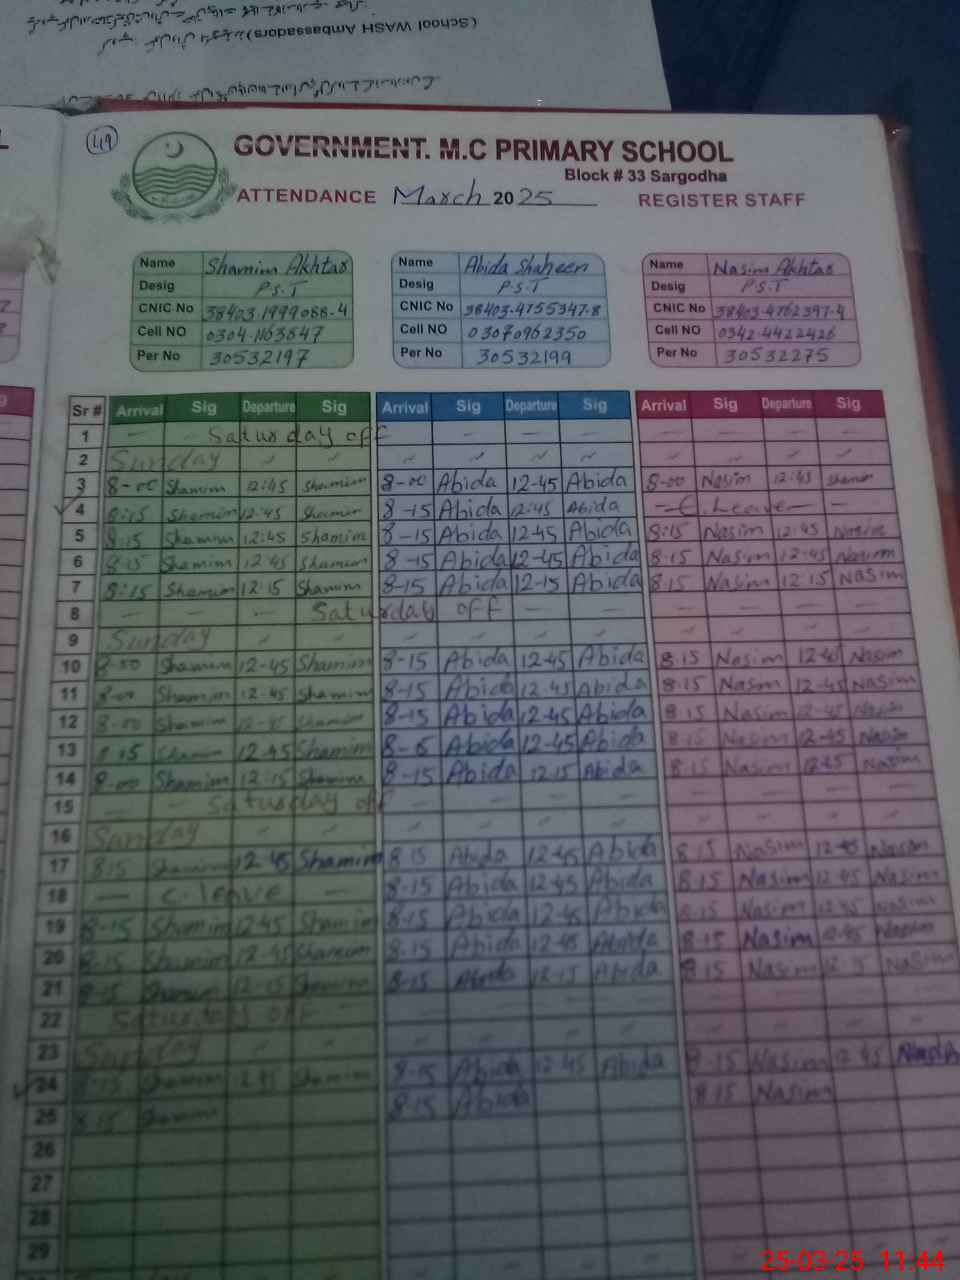 (School WASH Ambassadors)
49
GOVERNMENT. M.C PRIMARY SCHOOL
Block # 33 Sargodha
ATTENDANCE March 2025 REGISTER STAFF
Name Shamim Akhtar Name Abida Shaheen Name Nasim Akhtar
Desig P.S.T Desig P.S.T Desig P.S.T
CNIC No 38403-1999088-4 CNIC No 38403-4755347-8 CNIC No 38403-4762397-4
Cell NO 0304-1163647 Cell NO 03070962350 Cell NO 0342-4422426
Per No 30532197 Per No 30532199 Per No 30532275
Sr # Arrival Sig Departure Sig Arrival Sig Departure Sig Arrival Sig Departure Sig
1 — — Saturday off — — — — — — —
2 Sunday " " " " " " " " " "
3 8-00 Shamim 12:45 Shamim 8-00 Abida 12-45 Abida 8-00 Nasim 12:45 Shamim
4 8:15 Shamim 12:45 Shamim 8-15 Abida 12:45 Abida — C.Leave — -
5 8:15 Shamim 12:45 Shamim 8-15 Abida 12-45 Abida 8:15 Nasim 12:45 Nasim
6 8:15 Shamim 12 45 Shamim 8-15 Abida 12-45 Abida 8.15 Nasim 12:45 Nasim
7 8:15 Shamim 12.15 Shamim 8-15 Abida 12-15 Abida 8.15 Nasim 12.15 Nasim
8 — — — Saturday off — — — — — —
9 Sunday " " " " " " " " " "
10 8-00 Shamim 12-45 Shamim 8-15 Abida 12-45 Abida 8.15 Nasim 12-45 Nasim
11 8-00 Shamim 12-45 Shamim 8-15 Abida 12.45 Abida 8.15 Nasim 12-45 Nasim
12 8-00 Shamim 12-45 Shamim 8-15 Abida 12-45 Abida 8.15 Nasim 12-45 Nasim
13 8.15 Shamim 12.45 Shamim Abida 12-45 Abida 8.15 Nasim 12-45 Nasim
14 8-00 Shamim 12:15 Shamim 8-15 Abida 12.15 Abida 8.15 Nasim Nasim
15 — — Saturday off — — — — — — —
16 Sunday " " " " " " " " " "
17 8.15 Shamim 12-45 Shamim 8.15 Abida 12-45 Abida 8.15 Nasim 12-45 Nasim
18 — C-leave — 8-15 Abida 12-45 Abida 8.15 Nasim 12-45 Nasim
19 8-15 Shamim 12-45 Shamim 8-15 Abida 12-45 Abida 8.15 Nasim 12.45 Nasim
20 8-15 Shamim 12-45 Shamim 8.15 Abida 12-45 Abida 8.15 Nasim 12.45 Nasim
21 8-15 Shamim 12-15 Shamim 8-15 Abida 12-15 Abida 8.15 Nasim 12.15 Nasim
22 Saturday off — — — — — — — — —
23 Sunday " " " " " " " " " "
24 8-15 Shamim 12.45 Shamim 8-15 Abida 12-45 Abida 8.15 Nasim 12.45 Nasim
25 8.15 Shamim 8-15 Abida 8.15 Nasim
26
27
28
29
25-03-25 11:44